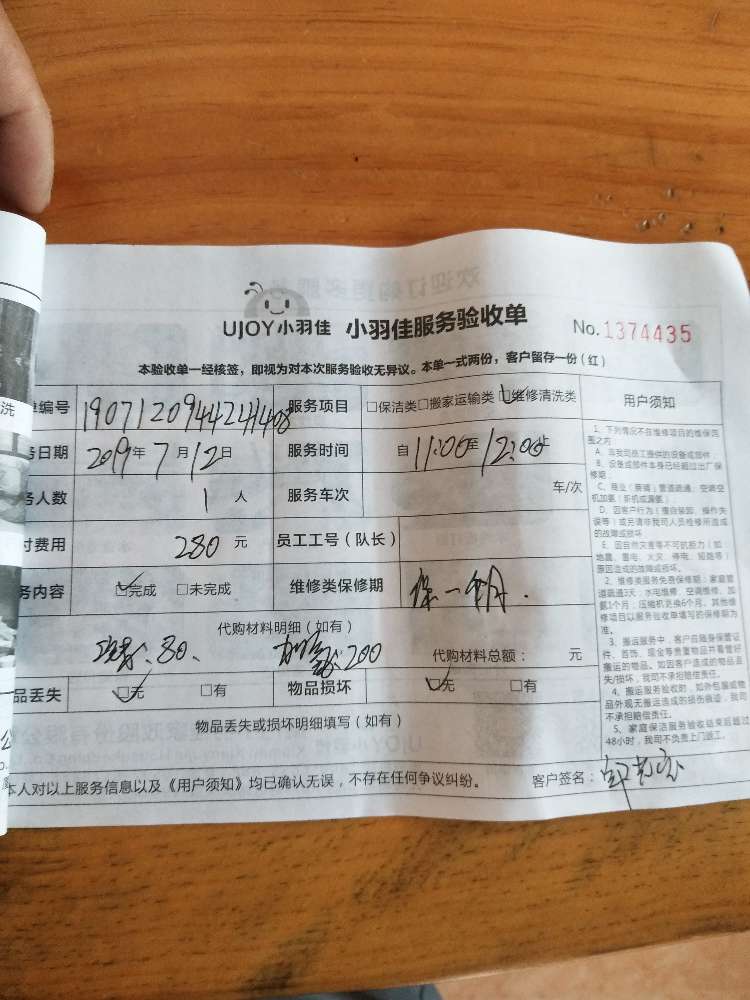 洗
UJOY小羽佳 小羽佳服务验收单 No.1374435
本验收单一经核签，即视为对本次服务验收无异议。本单一式两份，客户留存一份(红)
单编号 服务项目 □保洁类□搬家运输类□维修清洗类 用户须知
务日期 2019年7月12日 服务时间 自11:00至12:00止
务人数 1人 服务车次 车/次
付费用 280元 员工工号（队长）
务内容 □完成 □未完成 维修类保修期 保一个月.
代购材料明细（如有）
:80、 加氟:200 代购材料总额： 元
品丢失 □无 □有 物品损坏 □无 □有
物品丢失或损坏明细填写（如有）
本人对以上服务信息以及《用户须知》均已确认无误，不存在任何争议纠纷。 客户签名：
1、下列情况不在维修项目的维保范
围之内：
A、非我司员工提供的设备或部件；
B、设备或部件本身已经超过出厂保
修期；
D、因客户行为（擅自装卸、操作失
误等）或另请非我司人员检修所造成
的故障或损坏
E、因自然灾害等不可抗力（如：
地震、雷电、火灾、停电、短路等）
原因造成的故障或损坏。
2、维修类服务免费保修期：家庭管
道疏通3天；水电维修、空调维修、加
氨1个月；压缩机兑换6个月，其他维
修项目以服务验收单填写的保修期为
准。
3、搬运服务中，客户应随身保管证
件、首饰、现金等贵重物品并看管好
搬运的物品。如因客户造成的物品丢
失/损坏，我司不承担赔偿责任。
4、搬运服务验收时，如外包装或物
品外观无搬运造成的损伤痕迹，我司
不承担赔偿责任。
5、家庭保洁服务验收结束后超过
48小时，我司不负责上门返工。